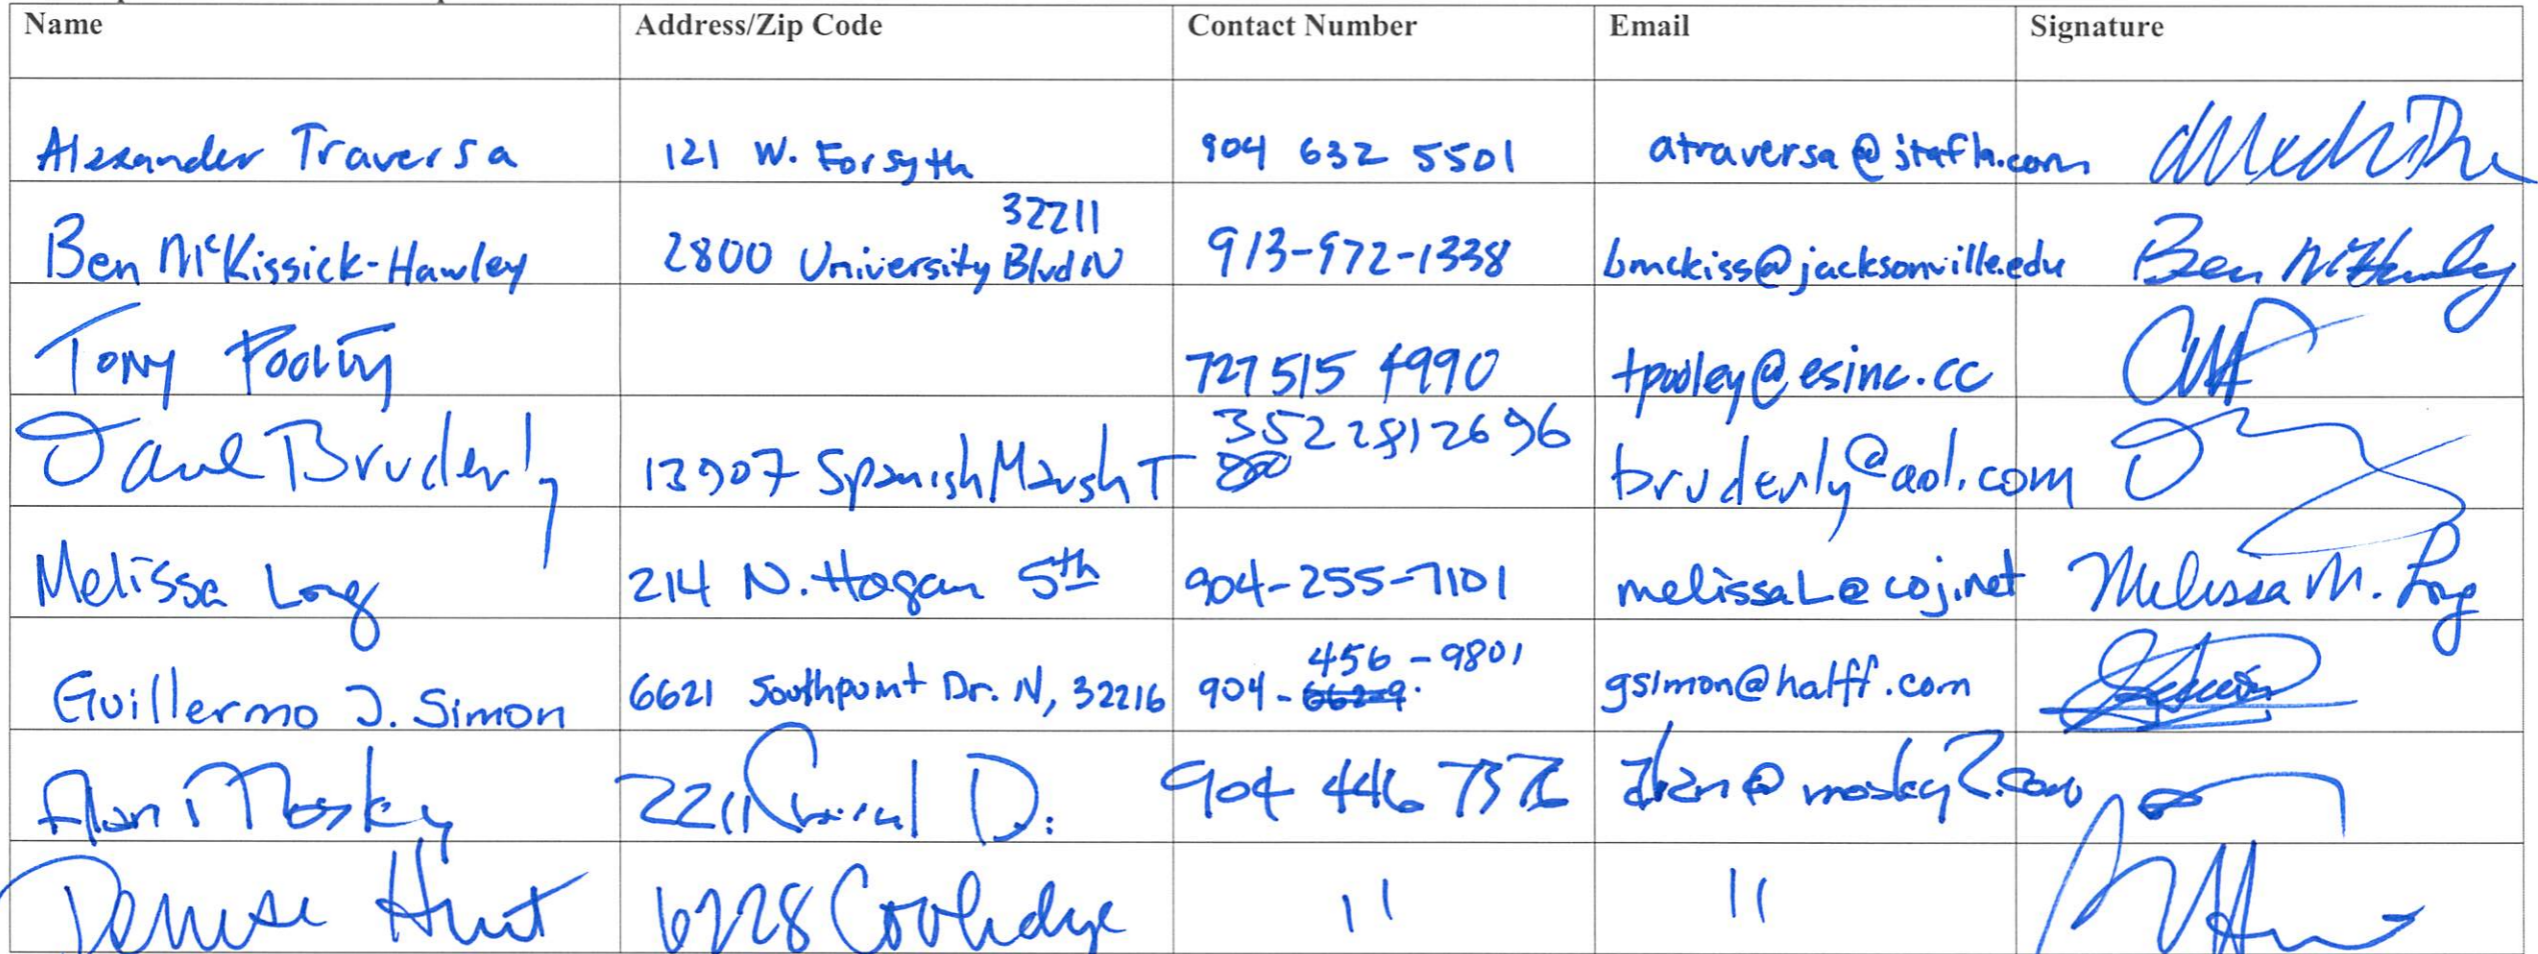 Name Address/Zip Code Contact Number Email Signature
Alexander Traversa 121 W. Forsyth 904 632 5501 atraversa@jtafla.com
32211
Ben McKissick-Hawley 2800 University Blvd N 913-972-1338 bmckiss@jacksonville.edu
Tony Pooley 727 515 4990 tpooley@esinc.cc
3522812696
Dave Bruderly 13907 Spanish Marsh T bruderly@aol.com
Melissa Long 214 N. Hogan 5th 904-255-7101 melissaL@coj.net Melissa M. Long
456-9801
Guillermo J. Simon 6621 Southpoint Dr. N, 32216 904- gsimon@halff.com
Alan Mosley 2211 D. 904 446
Denise Hunt 6728 Coolidge 11 11